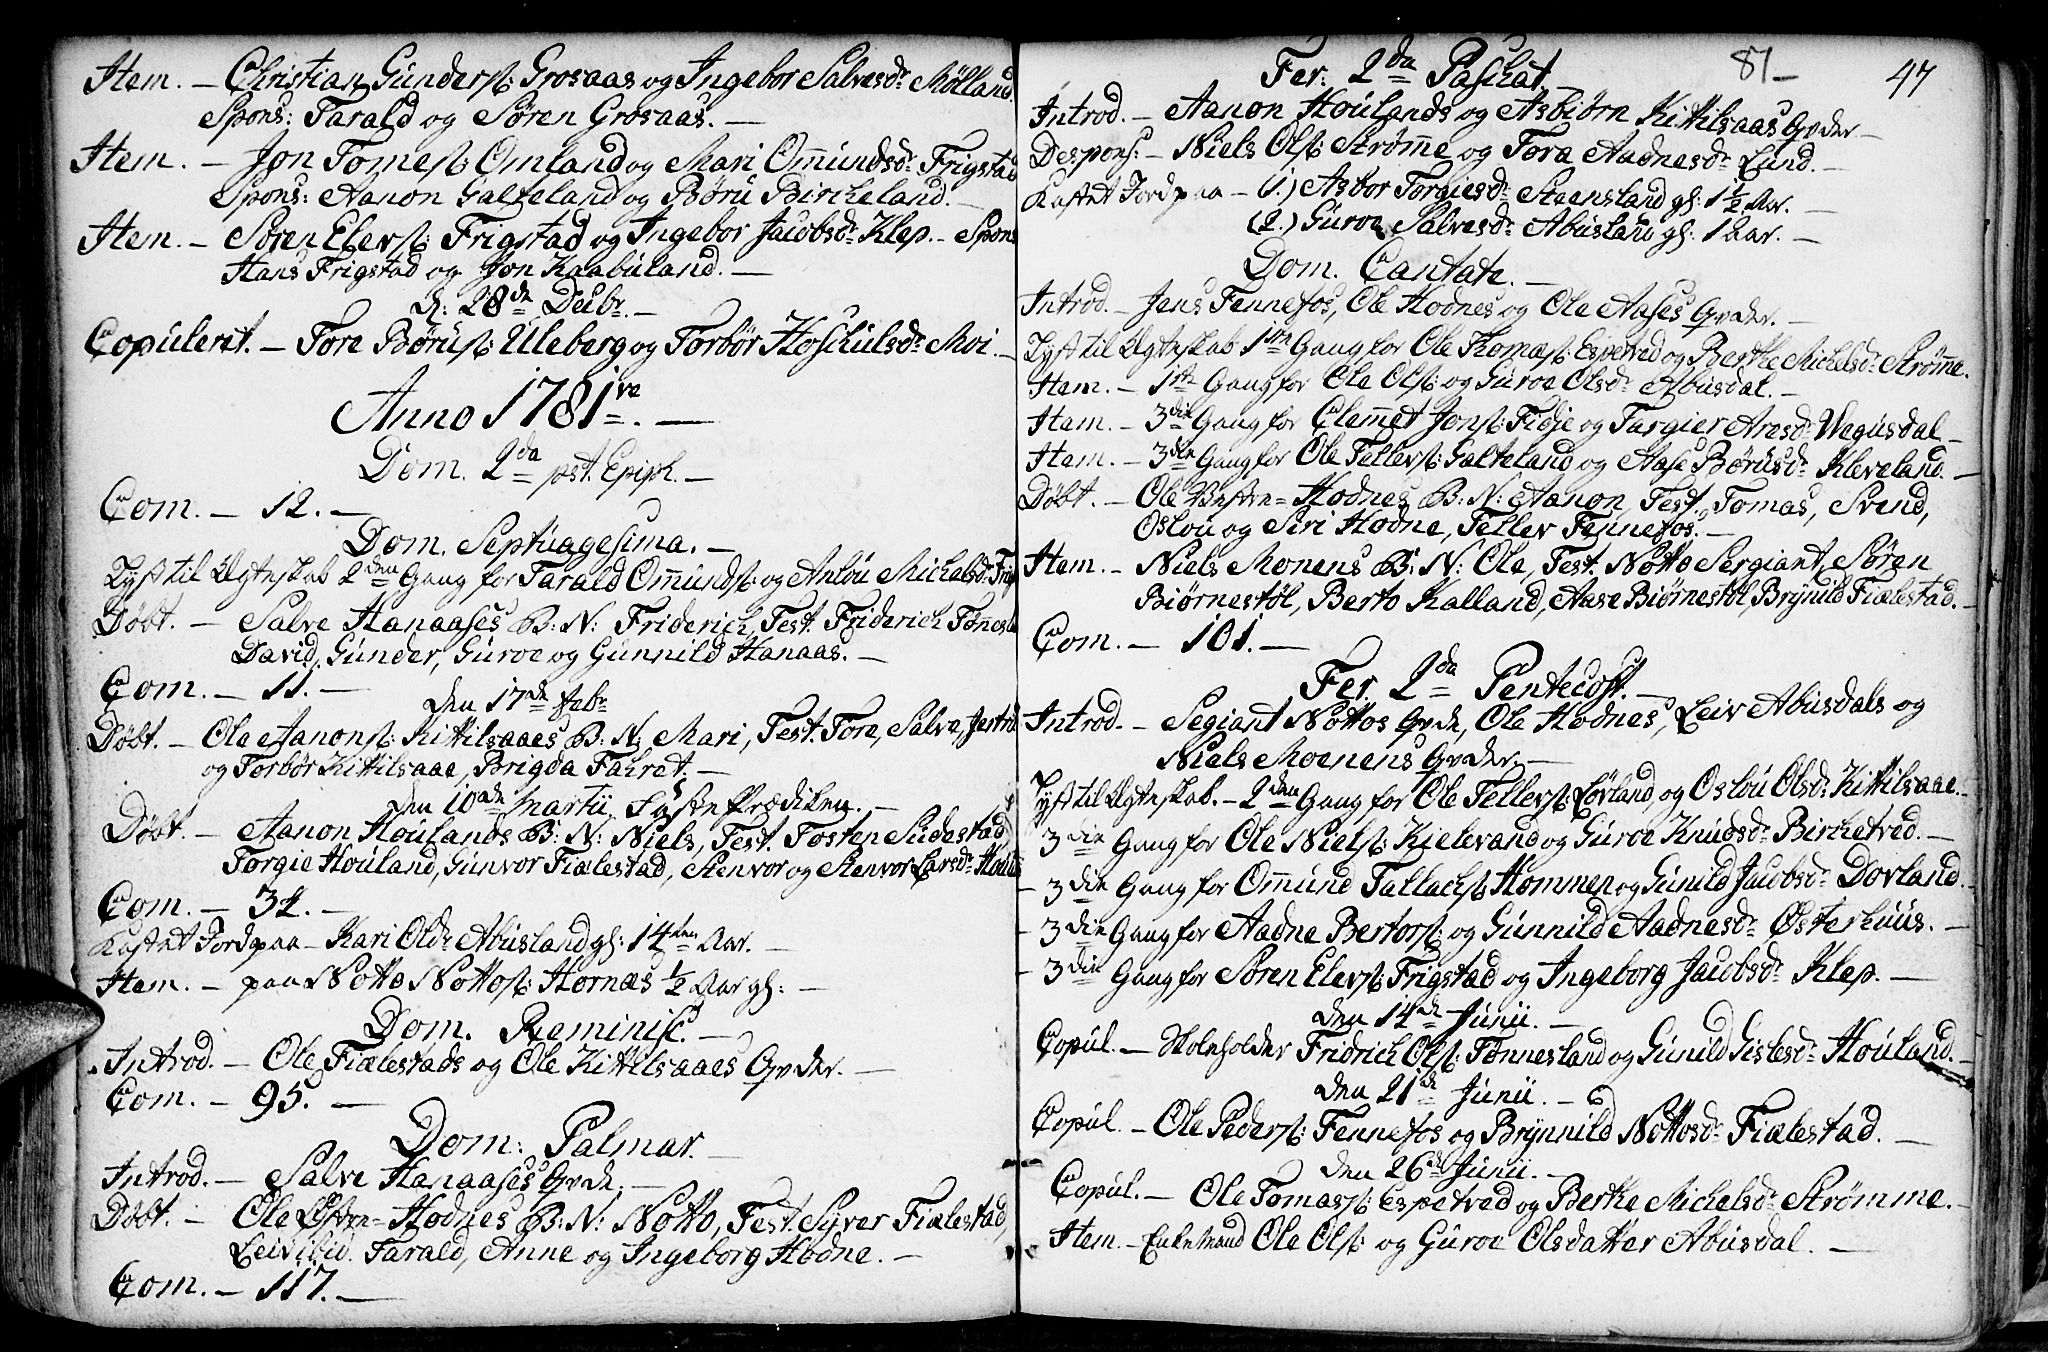 Item. – Christian Gunders: Grosaas og Ingebor Salvesdr Mølland.
Spons: Tarald og Søren Grosaas. –
Item. – Jon Tomes: Omland og Mari Om̅undsdr Frigstad
Spons: Aanon Galteland og Børu Bircheland. –
Item. – Søren Elevs: Frigstad og Ingebor Jacobsdr Klep. – Spons
Hans Frigstad og Jon Kaabuland. –
d: 28de Decbr. –
Copulerit. – Tore Børus: Uleberg og Torbør Hoschulsdr Moi. –
Anno 1781ve. –
Dom. 2da pst. Epiph. –
Com. – 12. –
Dom. Septuagesima. –
Lyst til Ægteskab 2den Gang for Tarald Om̅unds: og Anlou Michelsdr Frigs
Døbt. – Salve Hanaases B: N: Friderich, Test. Friderich Tøn̅esla
David, Gunder, Guroe og Gunnild Hanaas. –
Com. – 11. –
Den 17de Febr
Døbt. – Ole Aanons: Kittilsaaes B: N: Mari, Test. Tore, Salve, Jertrud
og Torbør Kittilsaae, Brigda Fahret. –
Den 10de Martii, Faste Prædiken. –
Døbt. – Aanon Houlands B: N: Niels, Test. Tosten Sudestad
Torgie Houland, Gunvor Fiælestad, Stenvor og Stenvor Larsdr Houla
Com. – 34. –
Kastet Jord paa – Kari Oldr Abusland gl: 14ten Aar. –
Item. – paa Notto Nottos: Hornæs ½ Aar gl: –
Dom. Reminisc. –
Introd. – Ole Fiælestads og Ole Kittilsaaes Qvder. –
Com. – 95. –
Dom: Palmar. –
Introd. – Salve Hanaases Qvde. –
Døbt. – Ole Østre= Hodnes B: N: Notto, Test. Syver Fiælestad,
Leiv ibid. Tarald, Anne og Ingeborg Hodne. –
Com. – 117. –
81 –
47
Fer: 2da Paschat. –
Introd. – Aanon Houlands og Asbiørn Kittilsaas Qvder –
Despons: – Niels Ols: Strøm̅e og Tora Aadnesdr Lund. –
Kastet Jord paa – (1.) Asbor Torgiesdr Steensland gl: 1½ Aar. –
(2.) Guroe Salvesdr Abusland gl: 1 Aar. –
Dom. Cantate. –
Introd. – Jens Fennefos, Ole Hodnes og Ole Aases Qvder. –
Lyst til Ægteskab 1ste Gang for Ole Thomæs: Espetved og Berthe Michelsdr Strøm̅e.
Item. – 1ste Gang for Ole Ols: og Guroe Olsdr Abusdal. –
Item. – 3die Gang for Clem̅et Jons: Fidje og Targier Aresdr Wegusdal –
Item. – 3die Gang for Ole Tellevs: Galteland og Aase Børusdr Kleveland. –
Døbt. – Ole Vestre= Hodnes B: N: Aanon, Test. Tomas, Svend,
Oslou og Siri Hodne, Tellev Fennefos. –
Item. – Niels Monens B: N: Ole, Test. Notto Sergiant, Søren
Biørnestøl, Berto Kalland, Aase Biørnestøl, Brynild Fiælestad. –
Com. – 101. –
Fer. 2da Pentecost. –
Introd. – Segiant Nottos Qvde, Ole Hodnes, Leiv Abusdals og
Niels Moenens Qvder. –
Lyst til Ægteskab. – 2den Gang for Ole Tellevs: Løvland og Oslou Olsdr Kittilsaae. –
3die Gang for Ole Niels: Kielevand og Guroe Knudsdr Birchetved. –
– 3die Gang for Om̅und Tallachs: Hommen og Gunild Jacobsdr Dovland. –
– 3die Gang for Aadne Bertors: og Gunnild Aadnesdr Østerhuus. –
– 3die Gang for Søren Elevs: Frigstad og Ingeborg Jacobsdr Klep. –
Den 14de Junii. –
Copul. – Skoleholder Fridrich Ols: Tønnesland og Gunild Gislesdr Houland. –
Den 21de Junii. –
Copul. – Ole Peders: Fennefos og Brynnild Nottosdr Fiælestad. –
Den 26de Junii. –
Copul. – Ole Tomass: Espetved og Berthe Michelsdr Strømme. –
Item. – Enkemand Ole Ols: og Guroe Olsdatter Abusdal. –